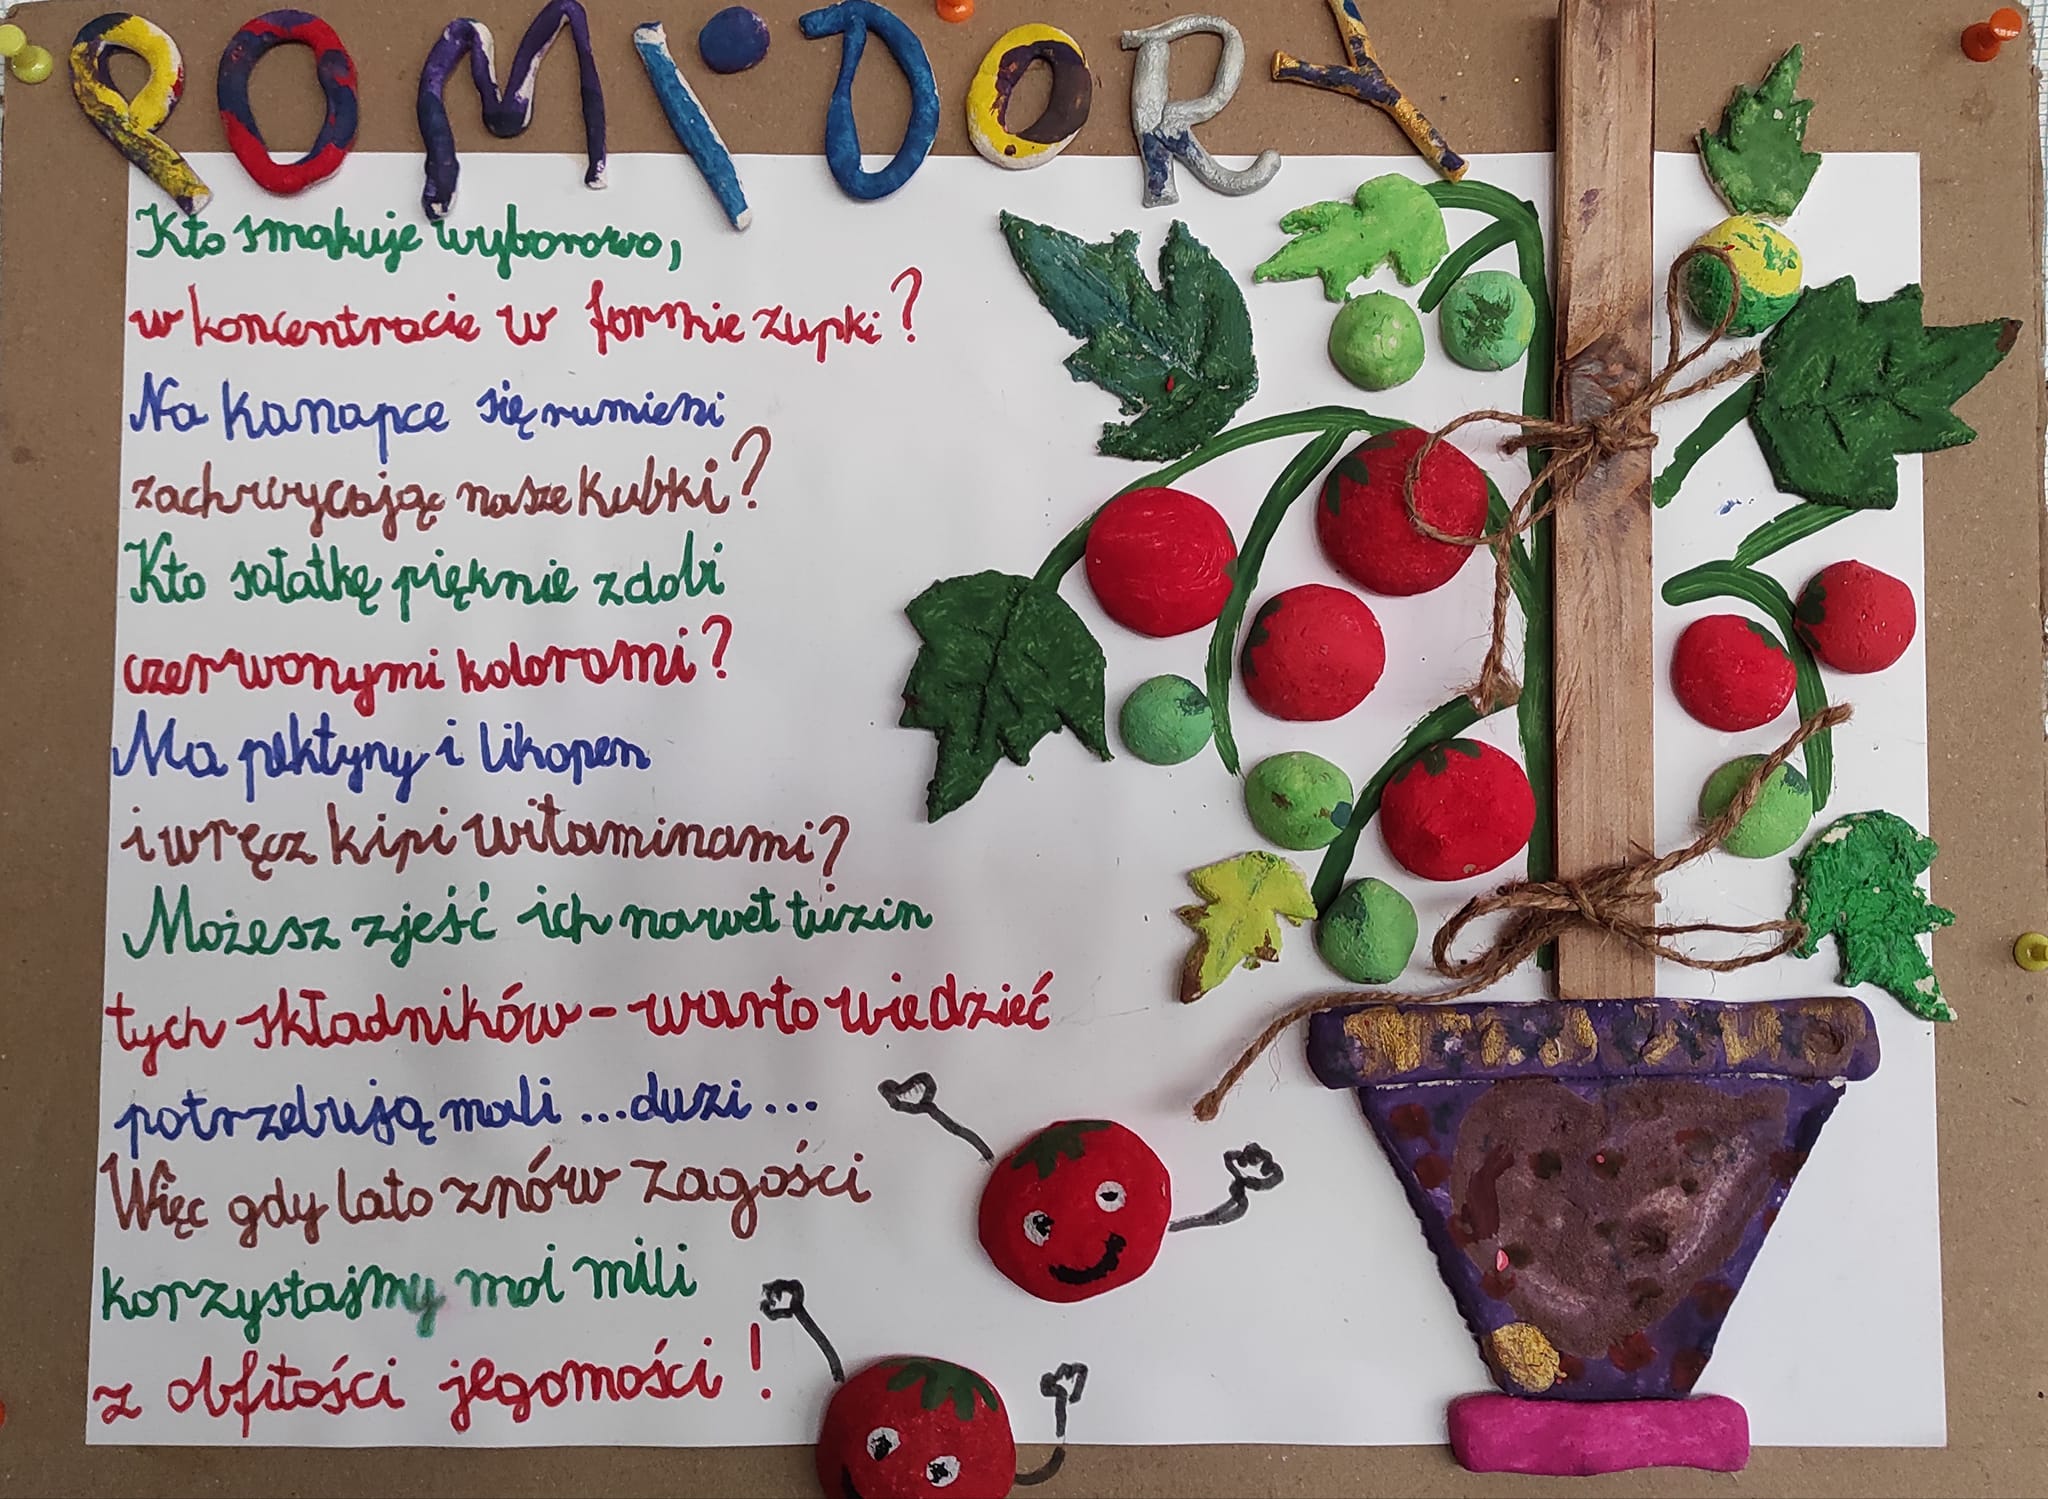 POMIDORY
Kto smakuje wyborowo,
w koncentracie w formie zupki?
Na kanapce się rumieni
zachwycając nasze kubki?
Kto sałatkę pięknie zdobi
czerwonymi kolorami?
Ma pektyny i likopen
i wręcz kipi witaminami?
Możesz zjeść ich nawet tuzin
tych składników - warto wiedzieć
potrzebują mali ... duzi ...
Więc gdy lato znów zagości
korzystajmy moi mili
z obfitości jegomości!